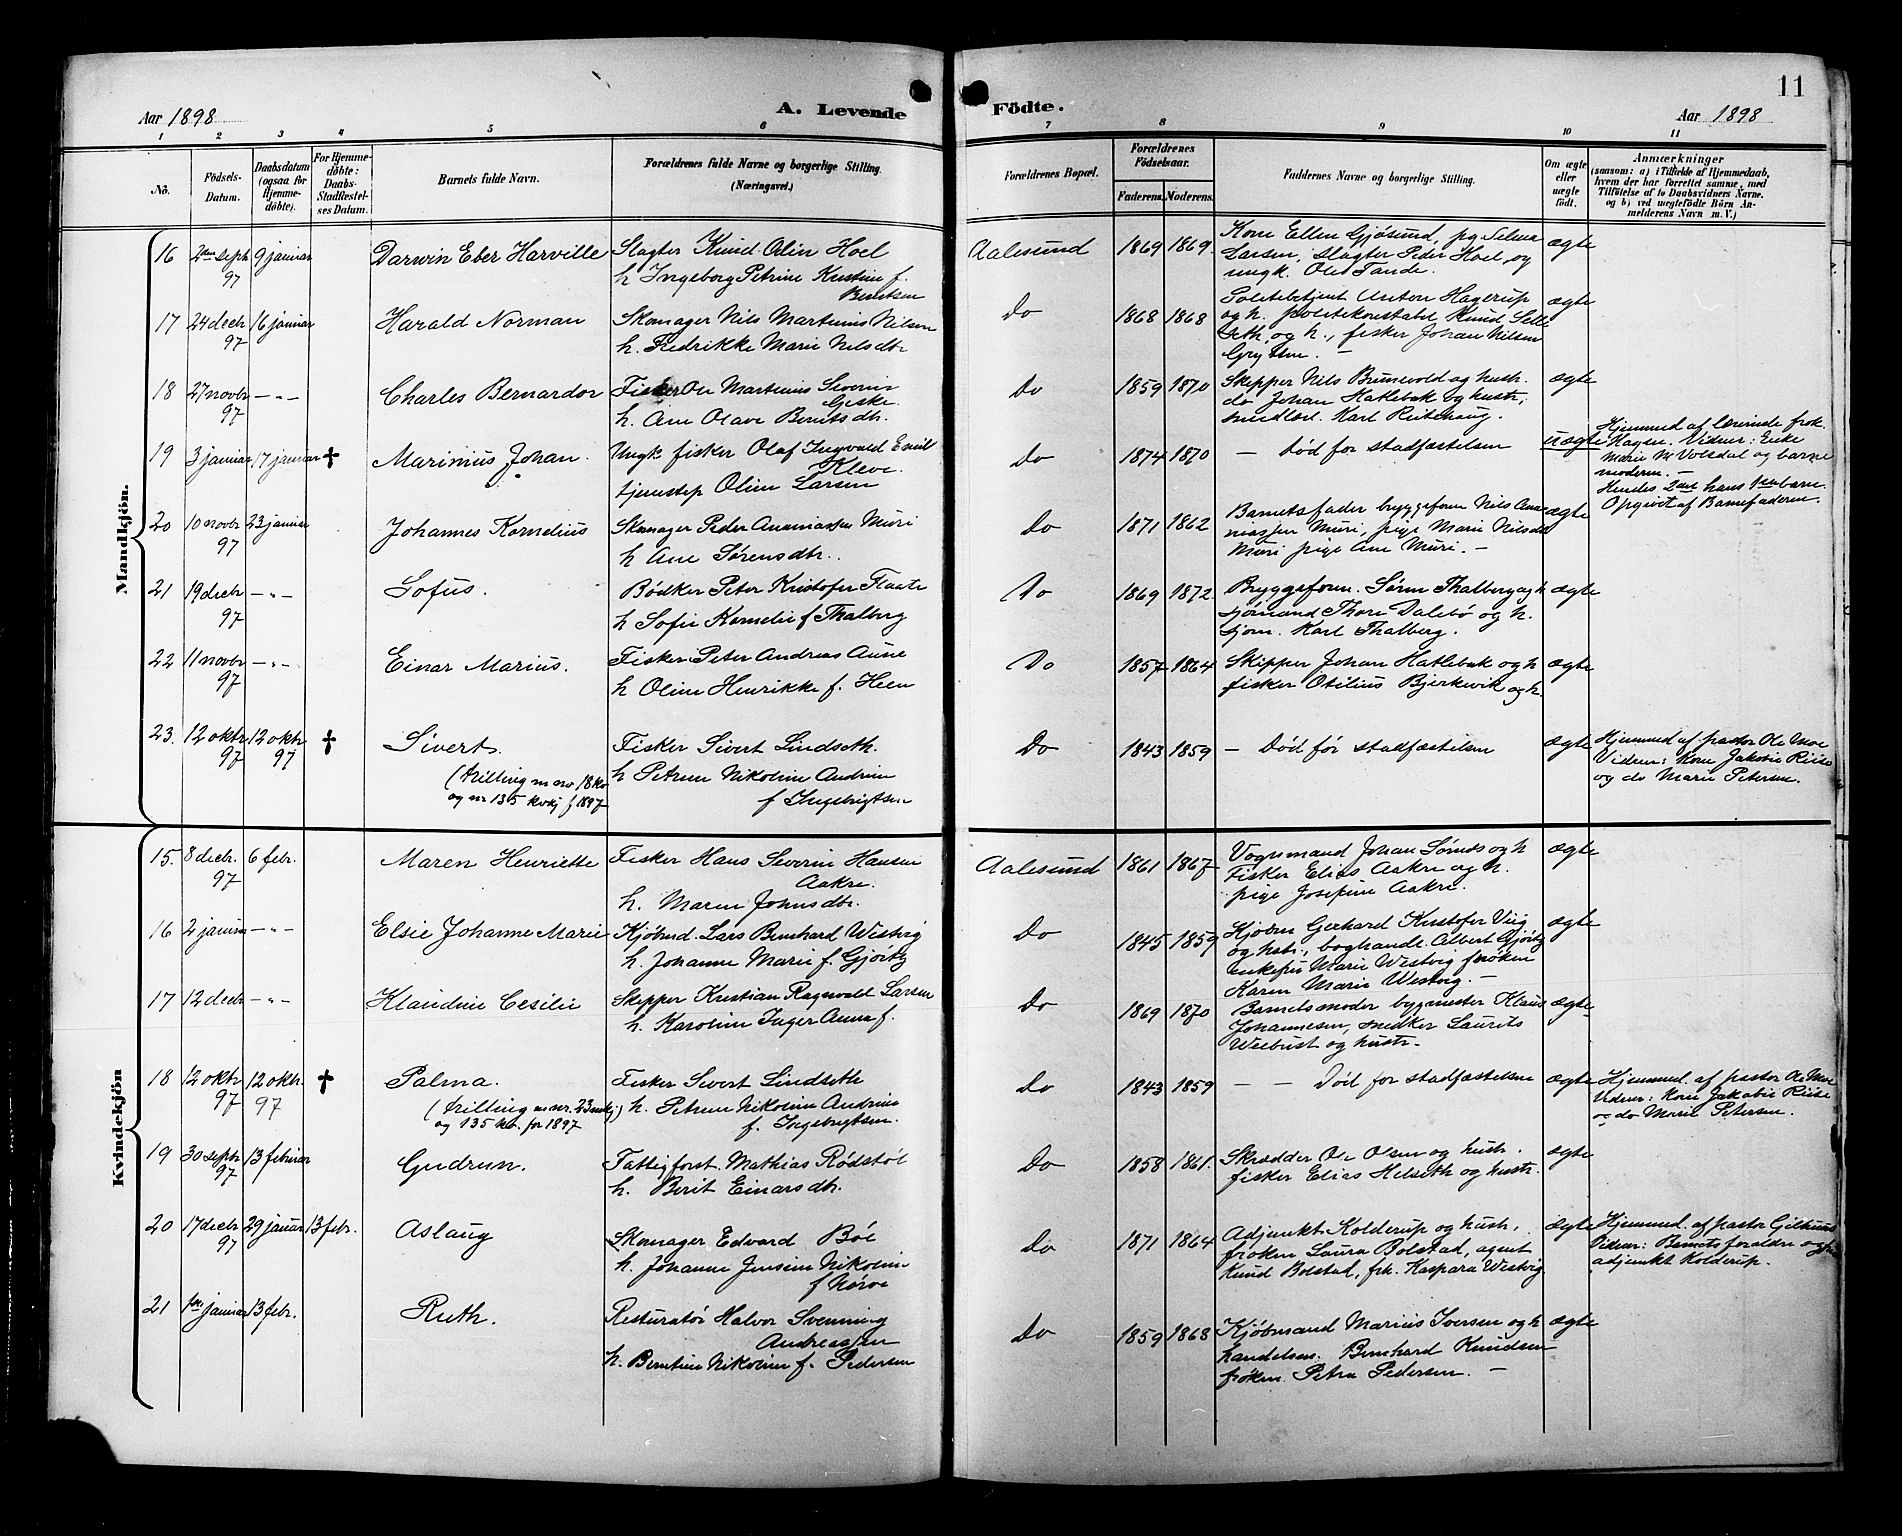 11
Aar 1898
A. Levende
Födte.
Aar 1898
1 2 3 4 5 6 7 8 9 10 11
Nō.
Födsels-Datum.
Daabsdatum (ogsaa for Hjemme-döbte).
For Hjemme-döbte: Daabs-Stadfæstelses Datum.
Barnets fulde Navn.
Forældrenes fulde Navne og borgerlige Stilling.
(Næringsvei.)
Forældrenes Bopæl.
Forældrenes Födselsaar.
Faderens. Moderens.
Faddernes Navne og borgerlige Stilling.
Om ægte eller uægte födt.
Anmærkninger
(saasom: a) i Tilfælde af Hjemmedaab, hvem der har forrettet samme, med Tilföielse af to Daabsvidners Navne. og b) ved uægtefödte Börn Anmelderens Navn m. V.)
Mandkjön.
16 2den septr 97 9 januar Darwin Eber Harville Slagter Knud Olin Hoel Aalesund 1869 1869. Kone Ellen Gjøsund, pg Selma ægte
h. Ingeborg Petrine Kristine f. Berntsen Larsen, slagter Peder Hoel, og ungk. Ole Tande.
17 24 decbr 97 16 januar Harald Norman Skomager Nils Martinius Nilsen Do 1868 1868 Politibetjent Anton Hagerup ægte
h. Fredrikke Marie Nilsdtr og h. politikonstabel Knud Selle
Seth, og h., fisker Johan Nilsen
Grytten. —
18 27 novbr 97 — „ — Charles Bernardor Fisker Ole Martinius Severin Giske. Do 1859 1870 Skipper Nils Brunevold og hustr. ægte
h. Ane Olave Berntsdtr. do Johan Hatlebak og hustr,
smedlærl. Karl Reitehaug.
19 3 januar 17 januar ✝ Marinius Johan. Ungk. fisker Olaf Ingvald Emil Kleve. Do 1874 1870 — Død før stadfæstelsen uægte Hjemmed af lærerinde frøk.
tjenestep Oline Larsen Hagen. Vidner: Enke
Marie M Volsdal og barne
moderen. —
Hendes 2det hans 1ste barn.
Opgivet af Barnefaderen
20 10 novbr 97 23 januar Johannes Kornelius Skomager Peder Ananiassen Muri Do 1871 1862 Barnets fader bryggeform Nils Ana ægte
h Ane Sørensdtr. niassen Muri, pige Marie Nilsdtr
Muri pige Ane Muri. —
21 19 decbr 97 — „ — Sofus. Bødker Peter Kristofer Flaate Do 1869 1872. Bryggeform. Sørin Thalberg og h ægte
h Sofie Kornelie f Thalberg sjømand Thore Dalebø og h.
sjom. Karl Thalberg.
22 11 novbr 97 — „ — Einar Marius. Fisker Peter Andreas Aune Do 1857 1864 Skipper Johan Hatlebak og h ægte
h Oline Henrikke f. Heen fisker Otilius Bjerkevik og h.
23. 12 oktr 97 12 oktr 97 ✝ Sivert. Fisker Sivert Lindseth. Do 1843 1859 — Død før stadfæstelsen ægte Hjemmed af pastor Ole Moe
(trilling m no 18 kv h Petrine Nikoline Andrine Vidner: Kone Jakobie Riise
og nr 135 kvkj f 1897 f Ingebrigtsen og do Marie Petersen.
Kvindekjön
15. 8 decbr. 97 6 febr. Maren Henriette Fisker Hans Severin Hansen Aakre. Aalesund 1861 1867 Vognmand Johan Sørnes og h ægte
h. Maren Johnsdtr. Fisker Elias Aakre og h.
pige Josefine Aakre.
16 2 januar — „ — Elsie Johanne Marie Kjøbmd. Lars Bernhard Westvig Do 1845 1859 Kjøbm Gerhard Kristofer Viig ægte
h. Johanne Marie f. Gjørtz og hst., boghandl. Albert Gjørtz
enkefru Marie Westvig frøken
Karen Marie Westvig. —
17 12 decbr — „ — Klaudine Cesilie Skipper Kristian Ragnvald Larsen Do 1869 1870 Barnets moder bygmester Klaus ægte
h. Karoline Inger Anna f. Johannesen, snedker Laurits
Weibust og hustr.
18 12 oktr 97 12 oktr. 97 ✝ Palma. Fisker Sivert Lindseth Do 1843 1859 — — Død før stadfæstelsen ægte Hjemmed. af pastor Ole Moe
(trilling m nr. 23 mkj) h. Petrine Nikoline Andrine Vidner: Kone Jakobie Riise
og 135 kv. for 1897 f. Ingebrigtsen. og do Marie Petersen.
19 30 septr 97 13 februar Gudrun. Fattigforst. Mathias Rødstøl Do 1858 1861. Skrædder Ole Olsen og hustr. ægte
h. Berit Einarsdtr. fisker Elias Helseth og hustr.
20 17 decbr 97 29 januar 13 febr. Aslaug Skomager Edvard Böe Do 1871 1864 Adjunkt Kolderup og hustr, ægte Hjemmed. af pastor Gilhuus
h. Johanne Jensine Nikoline f Nörve frøken Laura Bolstad, agent Vidner: Barnets forældre og
Knud Bolstad, frk. Kaspara Westvig adjunkt Kolderup.
21 1ste januar 13 febr. Ruth. Resturatør Halvor Svenning Andreassen Do 1859 1868 Kjøbmand Marius Iversen og h ægte
h. Berntine Nikoline f. Pedersen handelsm. Bernhard Knudsen
frøken. Petra Pedersen. —